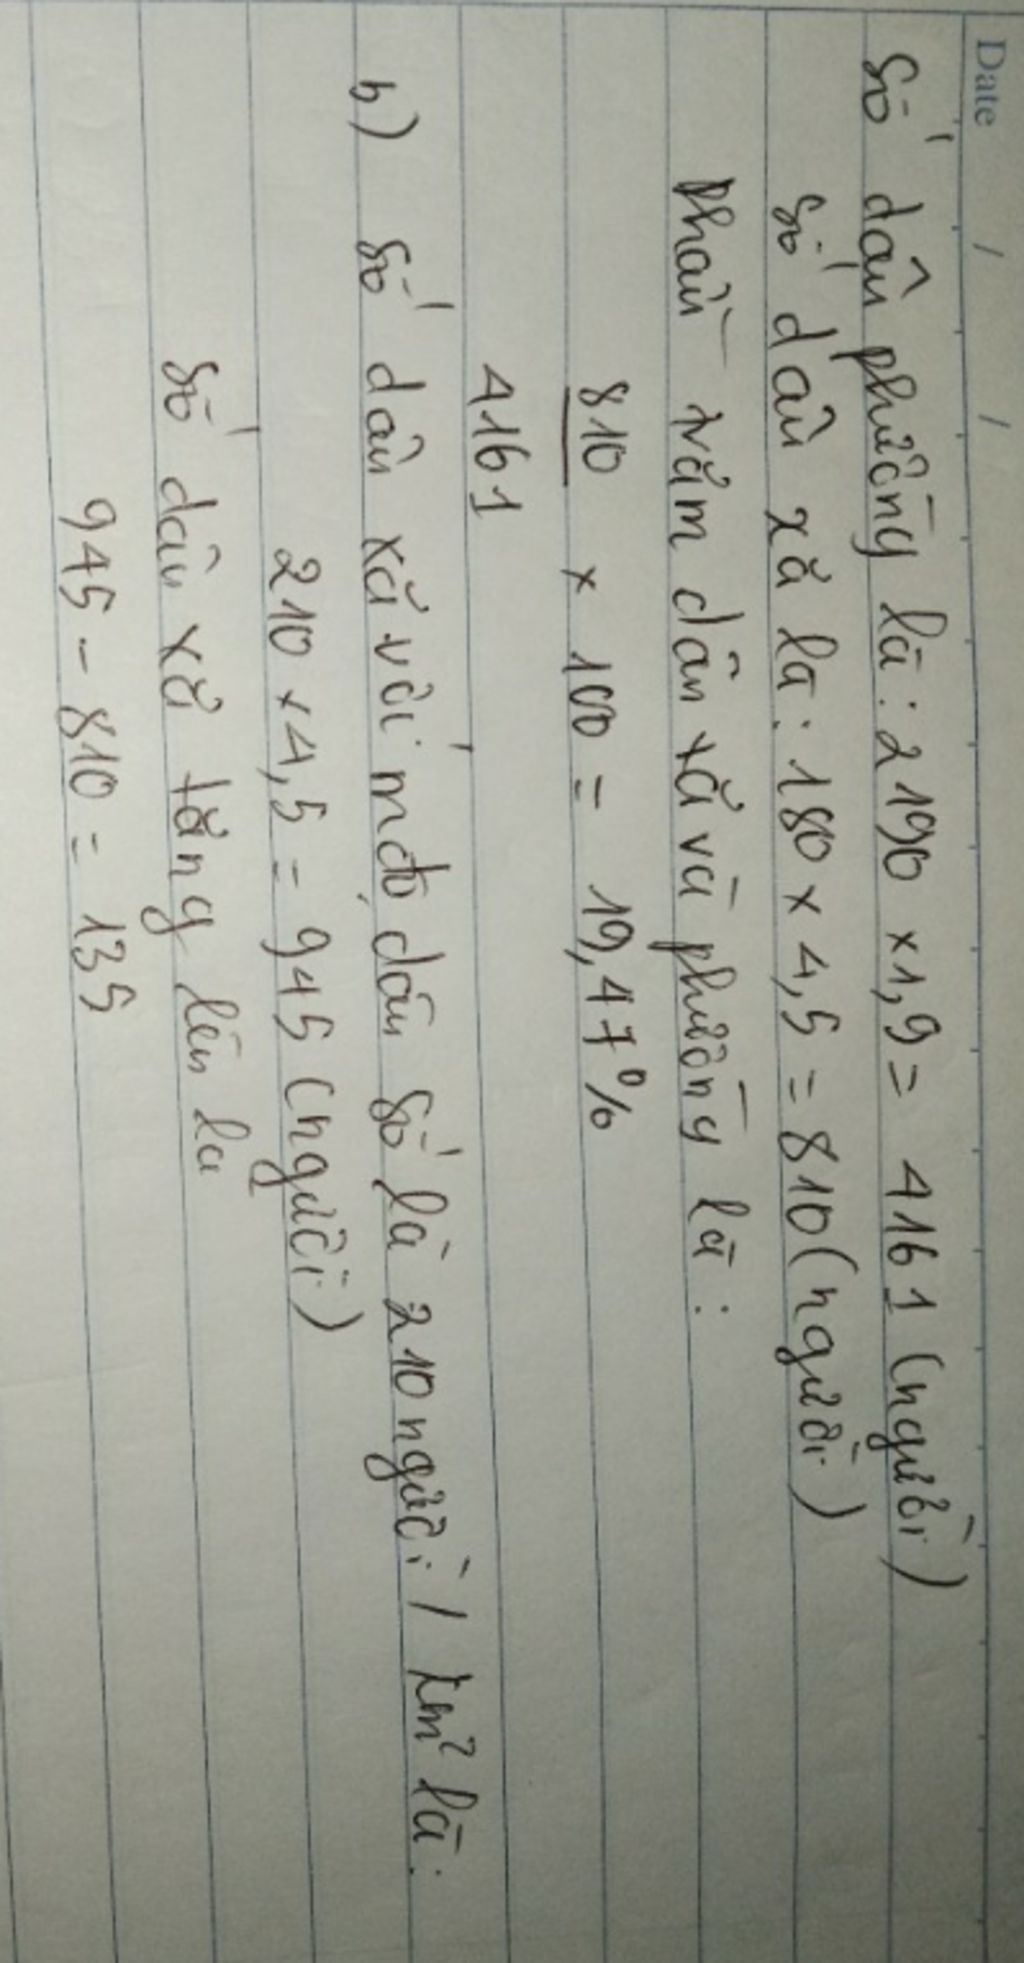 Date / /
Số dân phường là: 2190 × 1,9 = 4161 (người)
Số dân xã là: 180 × 4,5 = 810 (người)
Phần trăm dân xã và phường là:
810 × 100 = 19,47%
4161
b) Số dân xã với mđộ dân số là 210 người / km² là:
210 × 4,5 = 945 (người)
Số dân xã tăng lên là
945 - 810 = 135